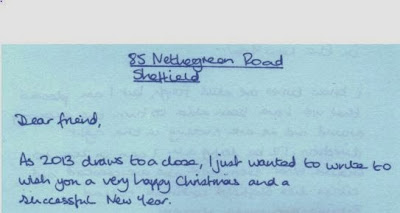 85 Nethergreen Road
Sheffield
Dear friend,
As 2013 draws to a close, I just wanted to write to
wish you a very happy Christmas and a
successful New Year.